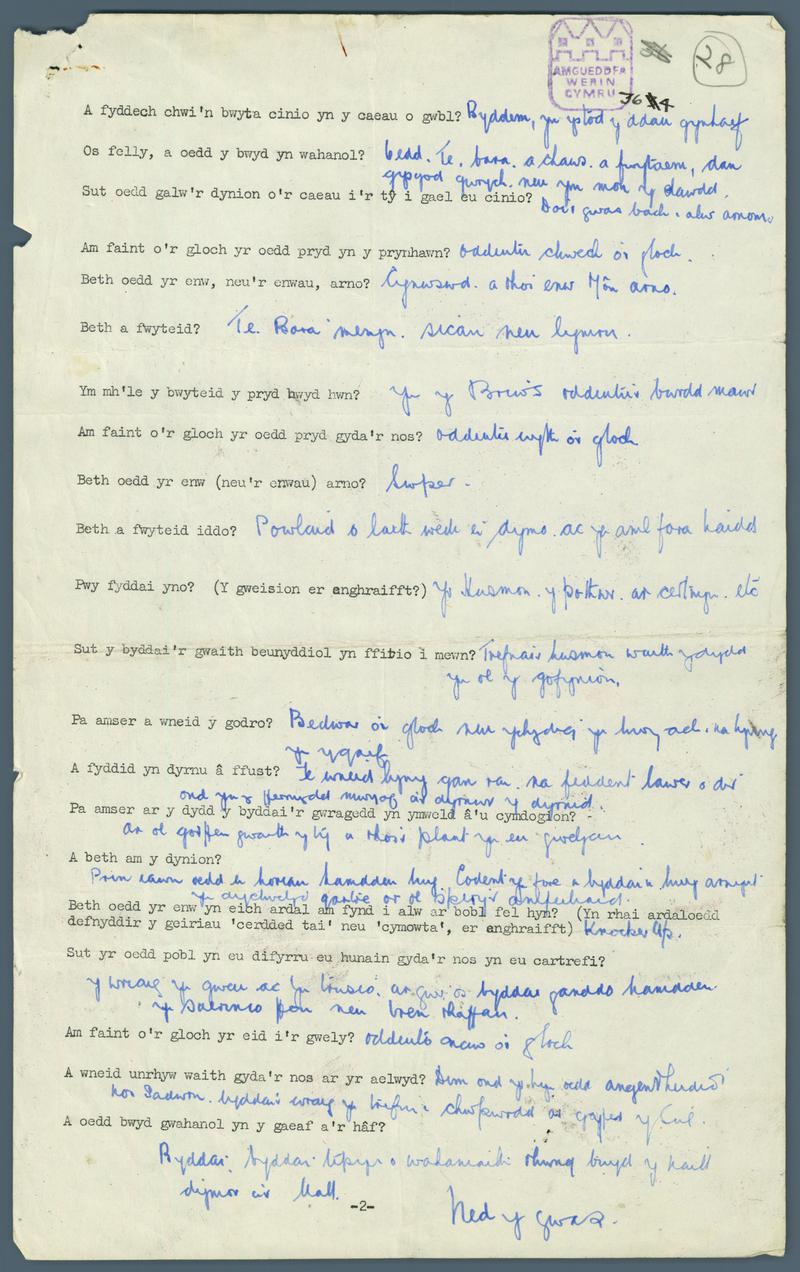 AMGUEDDFA
WERIN
CYMRU
28
36
A fyddech chwi'n bwyta cinio yn y caeau o gwbl? Byddem, yn ystod y ddau gynhaef
Os felly, a oedd y bwyd yn wahanol? oedd. Te. bara. a chaws. a dan
gwrych. neu ym mon y clawdd.
Sut oedd galw'r dynion o'r caeau i'r tŷ i gael eu cinio? gwas bach i alw arnom.
Am faint o'r gloch yr oedd pryd yn y prynhawn? oddentu chwech o'r gloch.
Beth oedd yr enw, neu'r enwau, arno? a rhoi enw Môn arno.
Beth a fwyteid? Te. Bara menyn. sican neu lymru.
Ym mh'le y bwyteid y pryd bwyd hwn? Yn y Briws oddentu'r bwrdd mawr
Am faint o'r gloch yr oedd pryd gyda'r nos? oddentu wyth o'r gloch
Beth oedd yr enw (neu'r enwau) arno? Swper.
Beth a fwyteid iddo? Powlaid o laeth wedi ei dymo. ac yn aml fara haidd
Pwy fyddai yno? (Y gweision er enghraifft?) Yr Husmon. y porthwr. a'r certmyn. etc
Sut y byddai'r gwaith beunyddiol yn ffitio i mewn? Trefnai'r husmon waith y dydd
yn ol y gofynion.
Pa amser a wneid y godro? Bedwar o'r gloch neu ychydig yn hwyrach. na hynny
yn y gaeaf
A fyddid yn dyrnu â ffust? Fe wneid hynny gan rai. na feddent lawer o dir
ond yn y ffermydd mwyaf a'r dyrnwr y dyrnid.
Pa amser ar y dydd y byddai'r gwragedd yn ymweld â'u cymdogion?
Ar ol gorffen gwaith y tŷ a rhoi'r plant yn eu gwelyau.
A beth am y dynion?
Prin iawn oedd eu horiau hamdden hwy. Codent yn fore a byddai'n hwyr arnynt
yn dychwelyd gartre ar ol swper amlfuhaid.
Beth oedd yr enw yn eich ardal am fynd i alw ar bobl fel hyn? (Yn rhai ardaloedd
defnyddir y geiriau 'cerdded tai' neu 'cymowta', er enghraifft) Knocker Up.
Sut yr oedd pobl yn eu difyrru eu hunain gyda'r nos yn eu cartrefi?
y wraig yn gweu ac yn trwsio. a'r gwr os byddai ganddo hamdden
yn neu bren rhaffau.
Am faint o'r gloch yr eid i'r gwely? oddentu naw o'r gloch
A wneid unrhyw waith gyda'r nos ar yr aelwyd? Dim ond yr hyn oedd angenrheidiol
nos Sadwrn. byddai'r wraig yn trefnu'r chwpwrdd ar gyfer y Sul.
A oedd bwyd gwahanol yn y gaeaf a'r hâf?
Byddai, byddai tipyn o wahaniaeth rhwng bwyd y naill
dymor a'r llall.
-2-
Ned y gwas.